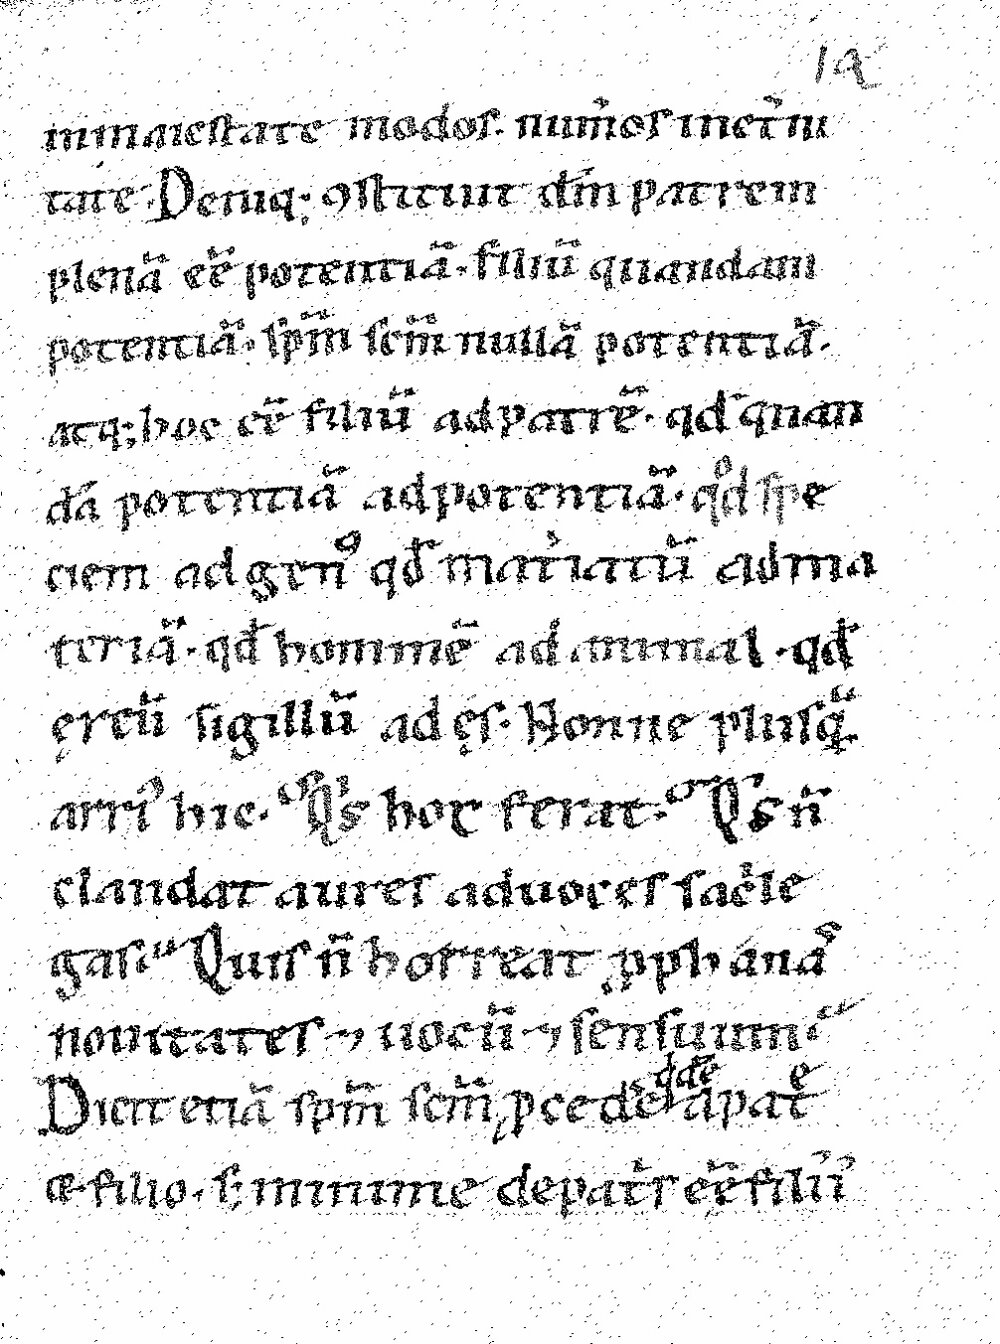 19
inmaiestate modos. num̅os inet̓ni
tate. Deniq; ꝯstituit dm̅ patrem
plenā ee̅ potentiā. filiū quandam
potentiā. spm̅ scm̅ nullā potentiā.
atq; hoc ee̅ filiū ad patrē. qd̅ quan
dā potentiā ad potentiā. qd̅ spe
ciem ad genꝰ qd̅ mat̓iatū ad ma
teriā. qd̅ hominē ad animal. qd̅
ęreū sigillū ad ęs. Nonne plusq̅
arriꝰ hic. Qis hoc ferat. Qis n̅
claudat aures ad uoces sac̓le
gas. Quis n̅ horreat ꝓphanas
nouitates ⁊ uocū ⁊ sensuum.
Dicit etiā spm̅ scm̅ ꝓcede apat̅e
& filio. s; minime de pat̓s ee̅ filii